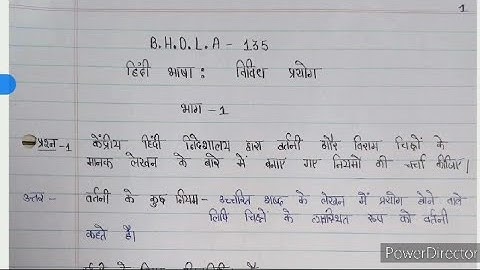 1
B.H.D.L.A - 135
हिंदी भाषा : विविध प्रयोग
भाग - 1
प्रश्न-1 केंद्रीय हिंदी निदेशालय द्वारा वर्तनी और विराम चिह्नों के
मानक लेखन के बारे में बनाए गए नियमों की चर्चा कीजिए।
उत्तर - वर्तनी के कुछ नियम - उच्चरित शब्द के लेखन में प्रयोग होने वाले
लिपि चिह्नों के व्यवस्थित रूप को वर्तनी
कहते है।
PowerDirector